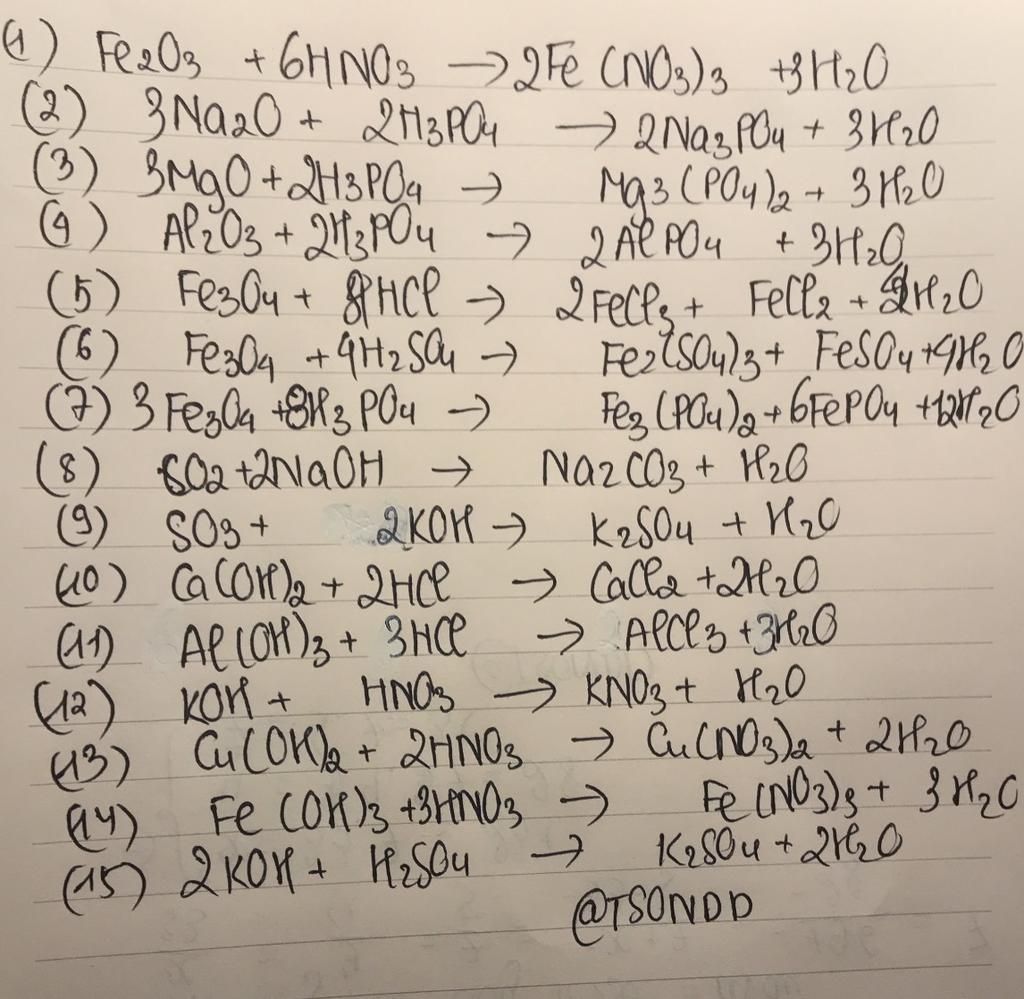 (1) Fe2O3 + 6HNO3 → 2Fe (NO3)3 + 3H2O
(2) 3Na2O + 2H3PO4 → 2Na3PO4 + 3H2O
(3) 3MgO + 2H3PO4 → Mg3(PO4)2 + 3H2O
(4) Al2O3 + 2H3PO4 → 2AlPO4 + 3H2O
(5) Fe3O4 + 8HCl → 2FeCl3 + FeCl2 + H2O
(6) Fe3O4 + 4H2SO4 → Fe2(SO4)3 + FeSO4 + 4H2O
(7) 3Fe3O4 + 8H3PO4 → Fe3(PO4)2 + 6FePO4 + 12H2O
(8) CO2 + 2NaOH → Na2CO3 + H2O
(9) SO3 + 2KOH → K2SO4 + H2O
(10) Ca(OH)2 + 2HCl → CaCl2 + 2H2O
(11) Al(OH)3 + 3HCl → AlCl3 + 3H2O
(12) KOH + HNO3 → KNO3 + H2O
(13) Cu(OH)2 + 2HNO3 → Cu(NO3)2 + 2H2O
(14) Fe (OH)3 + 3HNO3 → Fe (NO3)3 + 3H2O
(15) 2KOH + H2SO4 → K2SO4 + 2H2O
@TSONDD